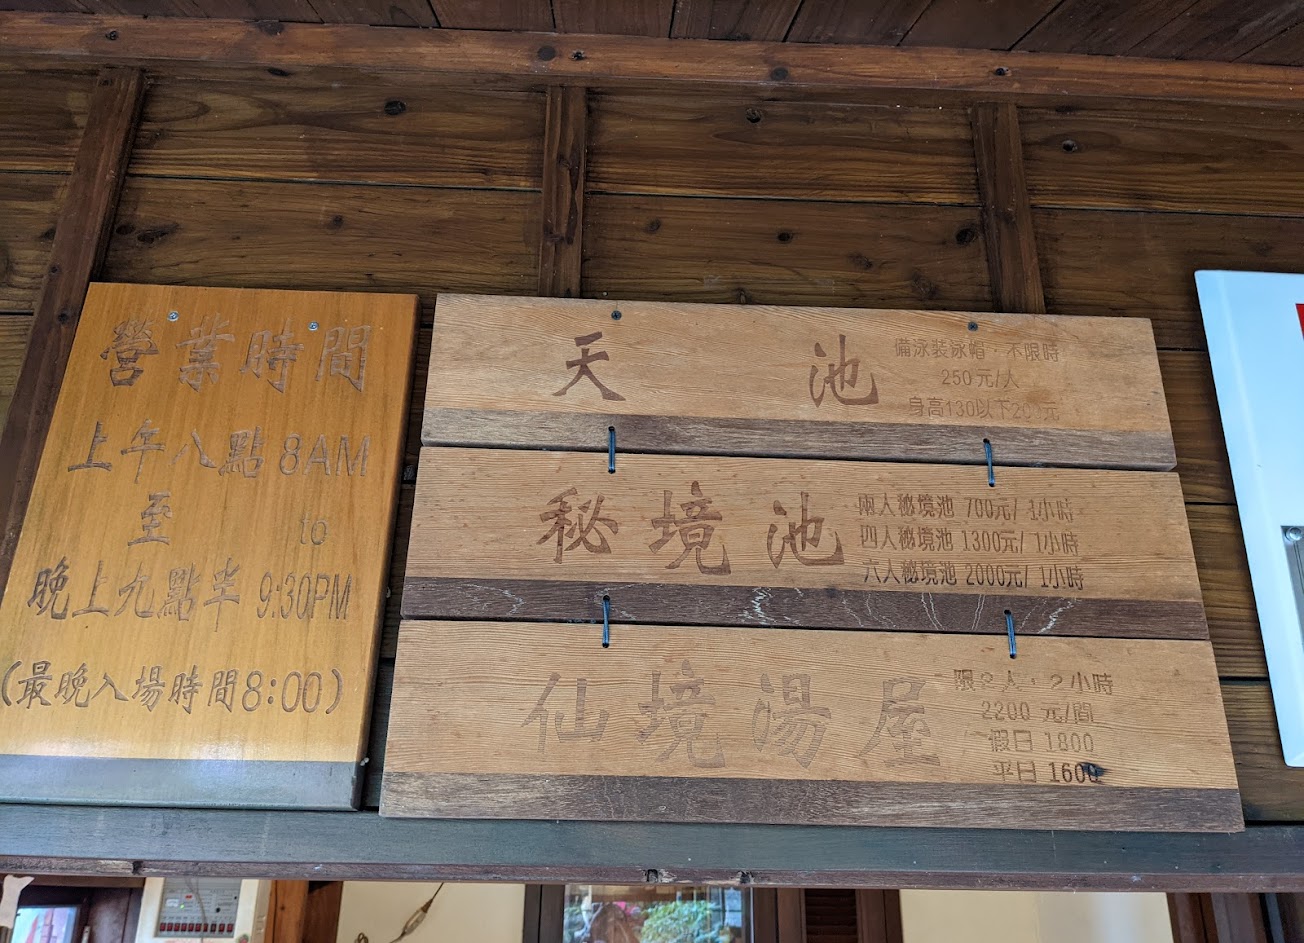 營業時間
上午八點 8AM
至 to
晚上九點半 9:30PM
(最晚入場時間8:00)
天池
備泳裝泳帽·不限時
250元/人
身高130以下200元
秘境池
兩人秘境池 700元/ 1小時
四人秘境池 1300元/ 1小時
六人秘境池 2000元/ 1小時
仙境湯屋
限2人·2小時
2200 元/間
假日 1800
平日 1600